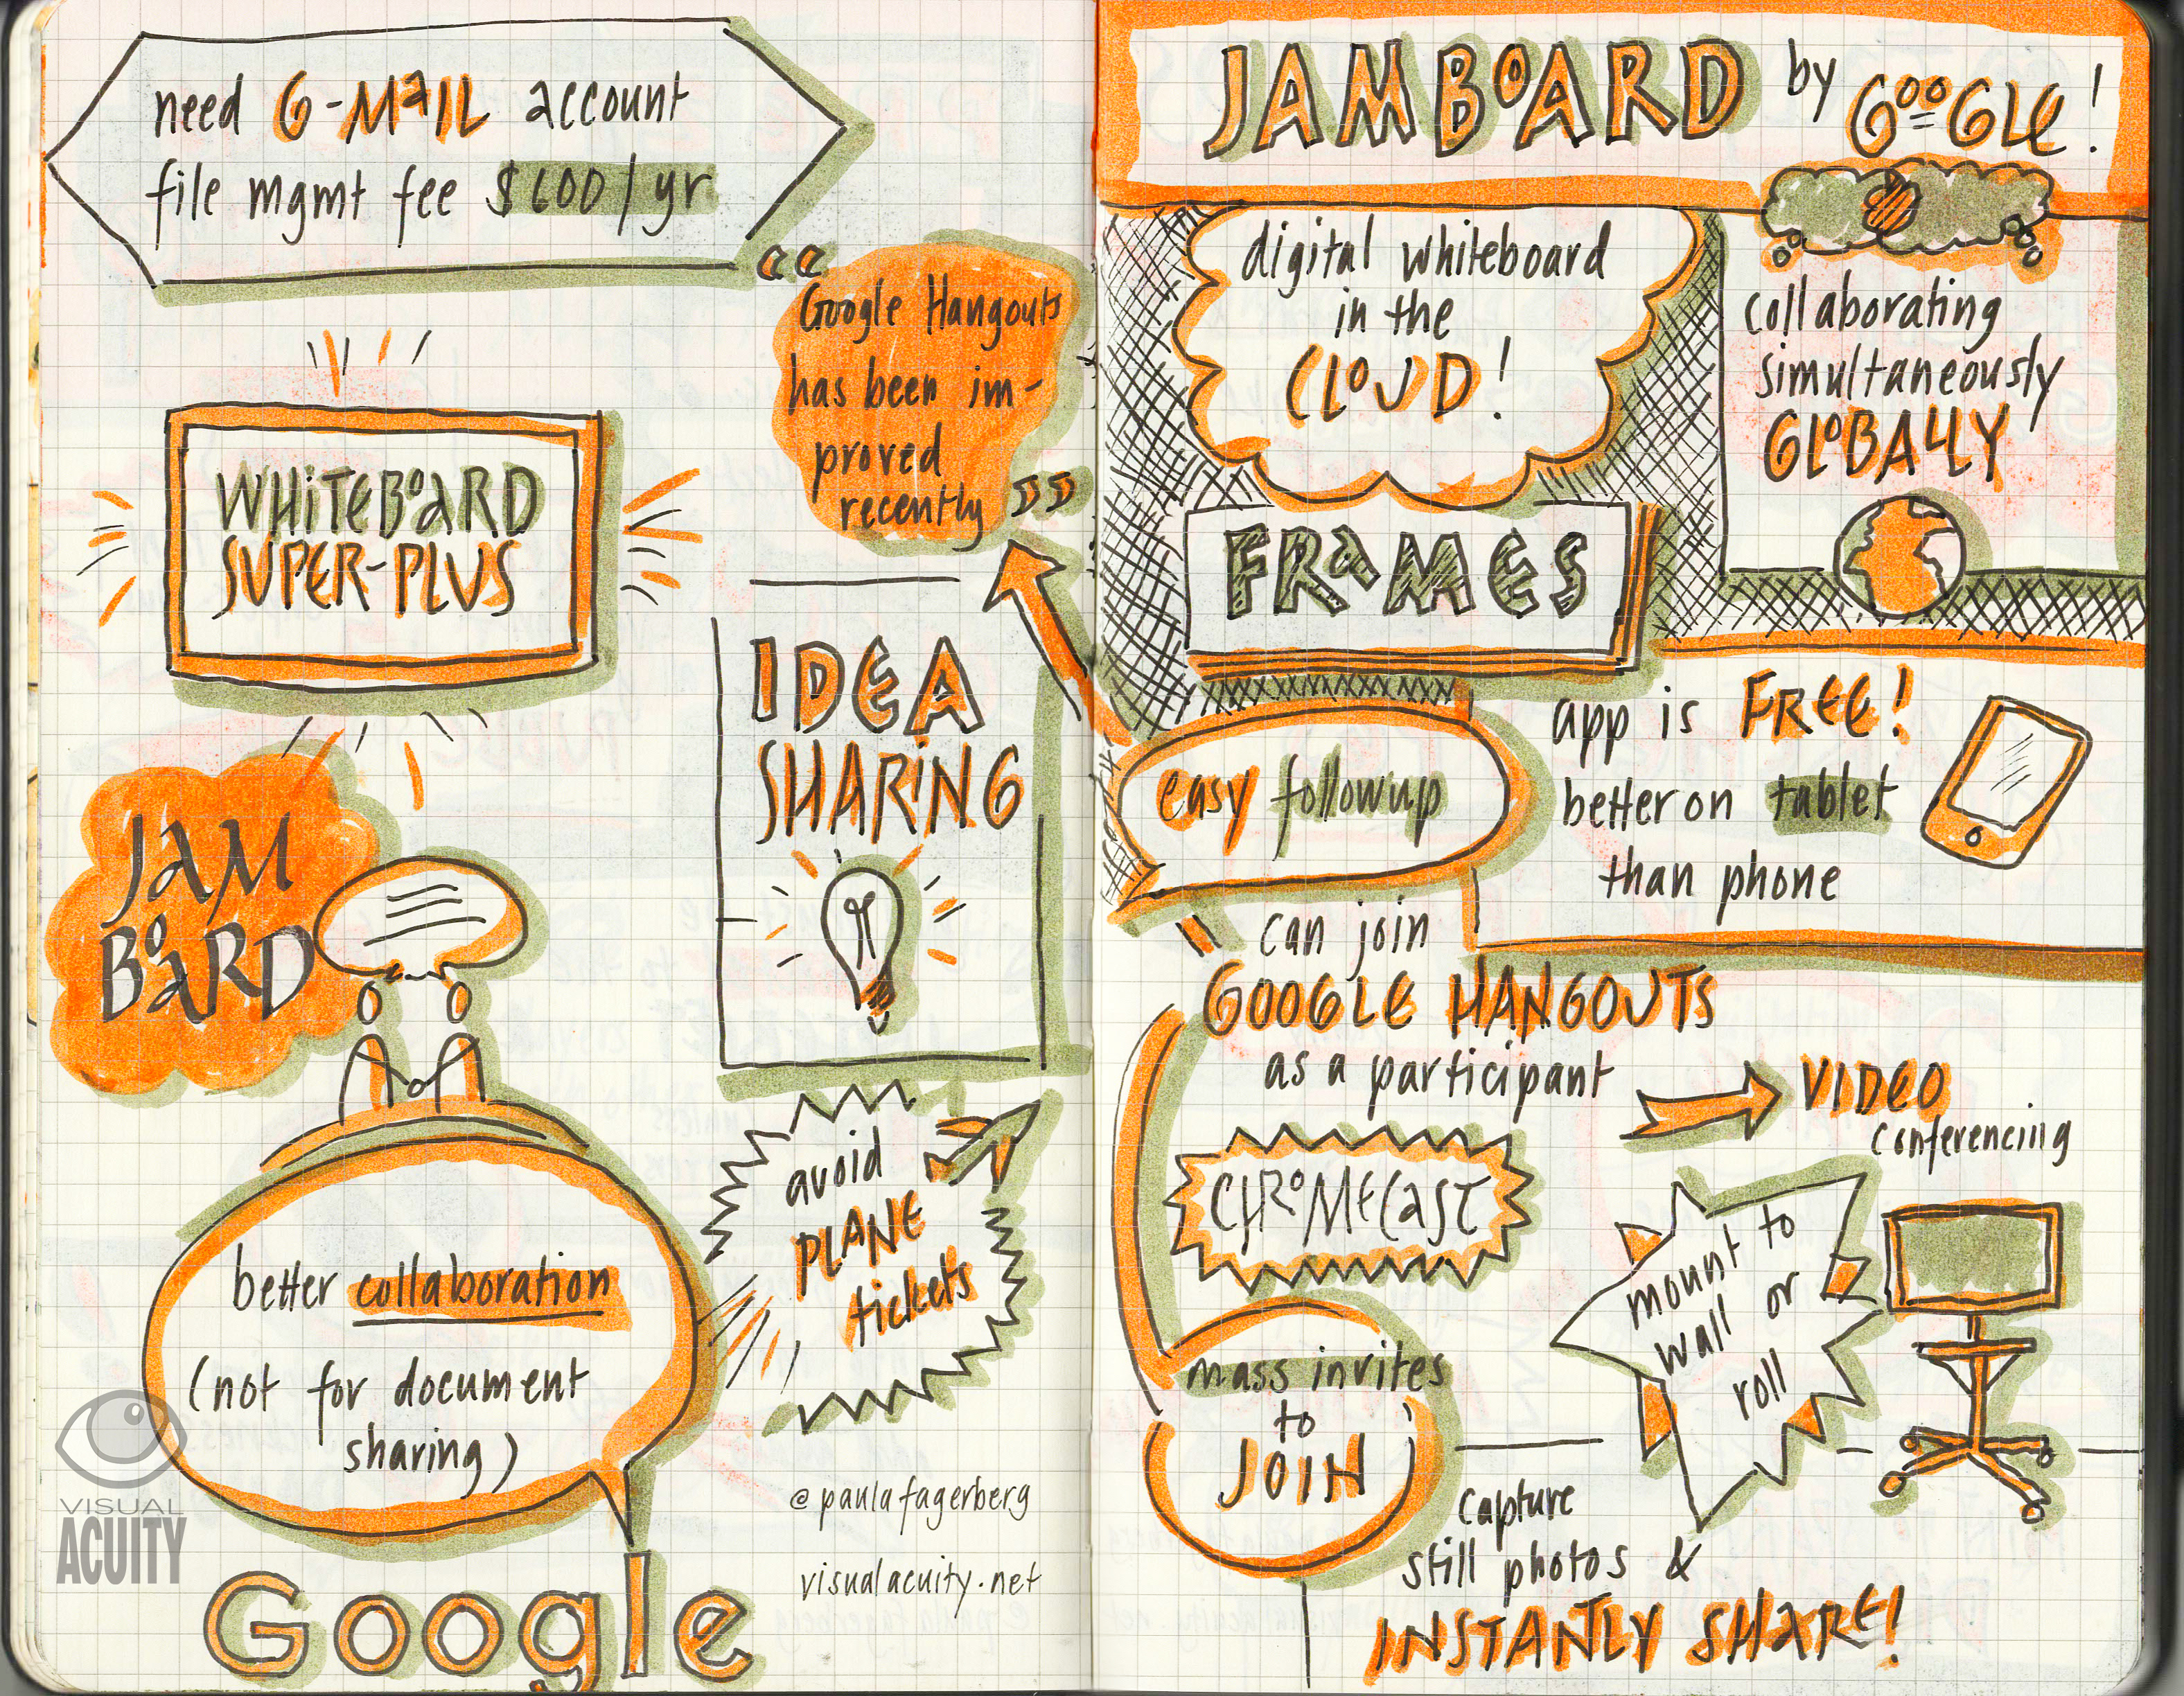 need G-MAIL account
file mgmt fee $600/yr
“
Google Hangouts
has been im-
proved
recently
”
WHITEBOARD
SUPER-PLUS
IDEA
SHARING
JAM
BOARD
avoid
PLANE
tickets
better collaboration
(not for document
sharing)
@paulafagerberg
visualacuity.net
VISUAL
ACUITY
Google
JAMBOARD by GOOGLE!
digital whiteboard
in the
CLOUD!
collaborating
simultaneously
GLOBALLY
FRAMES
app is FREE!
better on tablet
than phone
easy followup
can join
GOOGLE HANGOUTS
as a participant
VIDEO
conferencing
CHROMECAST
mount to
wall or
roll
mass invites
to
JOIN
capture
still photos &
INSTANTLY SHARE!